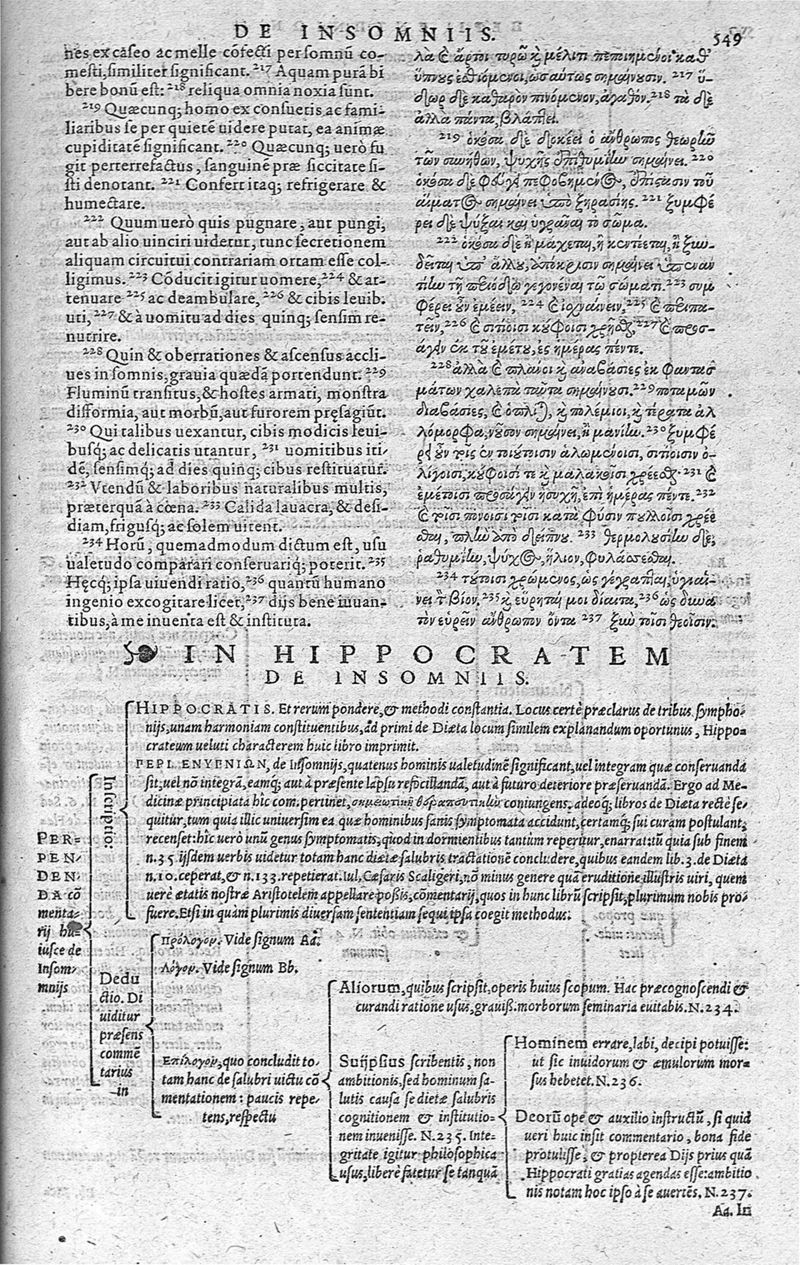 DE INSOMNIIS.
549
nes ex caseo ac melle cõfecti per somnũ co-
mesti, similiter significant. 217 Aquam purã bi
bere bonũ est: 218 reliqua omnia noxia sunt.
219 Quæcunq; homo ex consuetis ac fami-
liaribus se per quietẽ uidere putat, ea animæ
cupiditatẽ significant. 220 Quæcunq; uerò fu
git perterrefactus, sanguinẽ præ siccitate si-
sti denotant. 221 Confert itaq; refrigerare &
humectare.
222 Quum uerò quis pugnare, aut pungi,
aut ab alio uinciri uidetur, tunc secretionem
aliquam circuitui contrariam ortam esse col-
ligimus. 223 Cõducit igitur uomere, 224 & at-
tenuare 225 ac deambulare, 226 & cibis leuib.
uti, 227 & à uomitu ad dies quinq; sensim re-
nutrire.
228 Quin & oberrationes & ascensus accli-
ues in somnis, grauia quædã portendunt. 229
Fluminũ transitus, & hostes armati, monstra
difformia, aut morbũ, aut furorem pręsagiũt.
230 Qui talibus uexantur, cibis modicis leui-
busq; ac delicatis utantur, 231 uomitibus iti-
dẽ, sensimq; ad dies quinq; cibus restituatur.
232 Vtendũ & laboribus naturalibus multis,
præterquã à cœna. 233 Calida lauacra, & desi-
diam, frigusq; ac solem uitent.
234 Horũ, quemadmodum dictum est, usu
ualetudo comparari conseruariq; poterit. 235
Hęcq; ipsa uiuendi ratio, 236 quantũ humano
ingenio excogitare licet, 237 dijs bene iuuan-
tibus, à me inuenta est & instituta.
λα & ἄρτοι τυρῷ κ̀ μέλιτι πεποιημένοι καθ'
ὕπνους ἐσθιόμενοι, ὡσαύτως σημαίνουσιν. 217 ὕ-
δωρ δὲ καθαρὸν πινόμενον, ἀγαθόν. 218 τὰ δὲ
ἄλλα πάντα, βλάπτει.
219 ὁκόσα δὲ δοκέει ὁ ἄνθρωπος θεωρεῖν
τῶν συνήθων, ψυχῆς ἐπιθυμίην σημαίνει. 220
ὁκόσα δὲ φεύγει πεφοβημένος, ἐπίστασιν τοῦ
αἵματος σημαίνει ὑπὸ ξηρασίης. 221 ξυμφέ
ρει δὲ ψύξαι καὶ ὑγρᾶναι τὸ σῶμα.
222 ὁκόσα δὲ ἢ μάχεται, ἢ κεντέεται, ἢ ξυν-
δεῖται ὑπ' ἄλλου, ἀπόκρισιν σημαίνει ὑπεναν
τίην τῇ περιόδῳ γεγονέναι τῷ σώματι. 223 συμ
φέρει οὖν ἐμέειν, 224 & ἰσχναίνειν, 225 & περιπα-
τεῖν, 226 & σιτίοισι κούφοισι χρῆσθαι, 227 & προσ-
άγειν ἐκ τοῦ ἐμέτου, ἐς ἡμέρας πέντε.
228 ἀλλὰ & πλάνοι κ̀ ἀναβάσιες ἐκ φαντασ
μάτων χαλεπὰ ταῦτα σημαίνουσι. 229 ποταμῶν
διαβάσιες, & ὁπλῖται, κ̀ πολέμιοι, κ̀ τέρατα ἀλ
λόμορφα, νοῦσον σημαίνει, ἢ μανίην. 230 ξυμφέ
ρει οὖν τοῖς ἐν τουτοισιν ἁλωμένοισι, σιτίοισιν ὀ-
λίγοισι, κούφοισί τε κ̀ μαλακοῖσι χρέεσθαι. 231 &
ἐμέτοισι προσάγειν ἡσυχῆ, ἐπὶ ἡμέρας πέντε. 232
& τοῖσι πόνοισι τοῖσι κατὰ φύσιν πολλοῖσι χρέε
σθαι, πλὴν ἀπὸ δείπνου. 233 θερμολουσίην δὲ,
ῥαθυμίην, ψύχος, ἥλιον, φυλάσσεσθαι.
234 τούτοισι χρώμενος, ὡς γέγραπται, ὑγιαί-
νει τ̀ βίον. 235 κ̀ εὕρηταί μοι δίαιτα, 236 ὡς δυνα
τὸν εὑρεῖν ἄνθρωπον ὄντα 237 ξὺν τοῖσι θεοῖσιν.
IN HIPPOCRATEM
DE INSOMNIIS.
PER-
PEN-
DEN-
DA cõ
menta-
rij hu-
iusce de
Insom
mnijs
Inscriptio
HIPPOCRATIS. Et rerum pondere, & methodi constantia. Locus certè præclarus de tribus sympho-
nijs, unam harmoniam constituentibus, ad primi de Diæta locum similem explanandum oportunus, Hippo-
crateum ueluti characterem huic libro imprimit.
ΠΕΡΙ ΕΝΥΠΝΙΩΝ, de Insomnijs, quatenus hominis ualetudinẽ significant, uel integram quæ conseruanda
sit; uel nõ integrã, eamq; aut à præsente lapsu refocillandã, aut à futuro deteriore præseruandã. Ergo ad Me-
dicinæ principia ita hic com. pertinet, σημειωτικὴν θεραπευτικὴν coniungens. adeoq; libros de Diæta rectè se-
quitur, tum quia illic uniuersim ea quæ hominibus sanis symptomata accidunt, certamq; sui curam postulant,
recenset: hîc uerò unũ genus symptomatis, quod in dormientibus tantum reperitur, enarrat: tũ quia sub finem
n. 35. ijsdem uerbis uidetur totam hanc diætæ salubris tractationẽ concludere, quibus eandem lib. 3. de Diæta
n. 10. ceperat, & n. 133. repetierat. Iul. Cæsaris Scaligeri, nõ minus genere quã eruditione illustris uiri, quem
uerè ætatis nostræ Aristotelem appellare possis, cõmentarij, quos in hunc librũ scripsit, plurimum nobis pro-
fuere. Etsi in quàm plurimis diuersam sententiam sequi ipsa coegit methodus.
Dedu
ctio. Di
uiditur
præsens
commẽ
tarius
in
Πρόλογον. Vide signum Aa.
Λόγον. Vide signum Bb.
Ἐπίλογον, quo concludit to-
tam hanc de salubri uictu cõ
mentationem: paucis repe-
tens, respectu
Aliorum, quibus scripsit, operis huius scopum. Hac præcognoscendi &
curandi ratione usus, grauiß. morborum seminaria euitabis. N. 234.
Suijpsius scribentis, non
ambitionis, sed hominum sa-
lutis causa se dietæ salubris
cognitionem & institutio-
nem inuenisse. N. 235. Inte-
gritate igitur philosophica
usus, liberè fatetur se tanquã
Hominem errare, labi, decipi potuisse:
ut sic inuidorum & æmulorum mor-
sus hebetet. N. 236.
Deorũ ope & auxilio instructũ, si quid
ueri huic insit commentario, bona fide
protulisse, & propterea Dijs prius quã
Hippocrati gratias agendas esse: ambitio
nis notam hoc ipso à se auertẽs. N. 237.
Aa. In